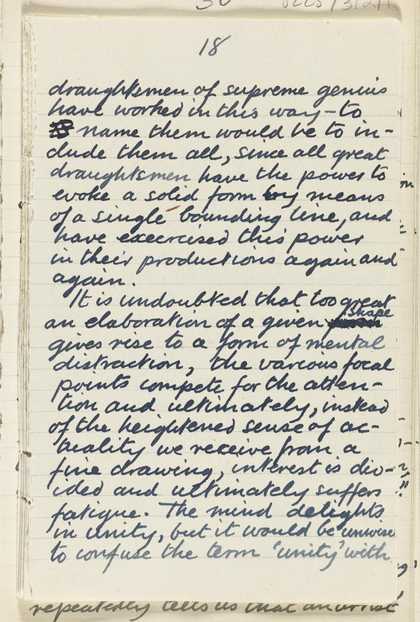 18
draughtsmen of supreme genius
have worked in this way – to
name them would be to in-
clude them all, since all great
draughtsmen have the power to
evoke a solid form by means
of a single bounding line, and
have excercised this power
in their productions again and
again.
It is undoubted that too great
an elaboration of a given shape
gives rise to a form of mental
distraction, the various focal
points compete for the atten-
tion and ultimately, instead
of the heightened sense of ac-
tuality we receive from a
fine drawing, interest is div-
ided and ultimately suffers
fatigue. The mind delights
in unity, but it would be unwise
to confuse the term 'unity' with
repeatedly tells us that an artist